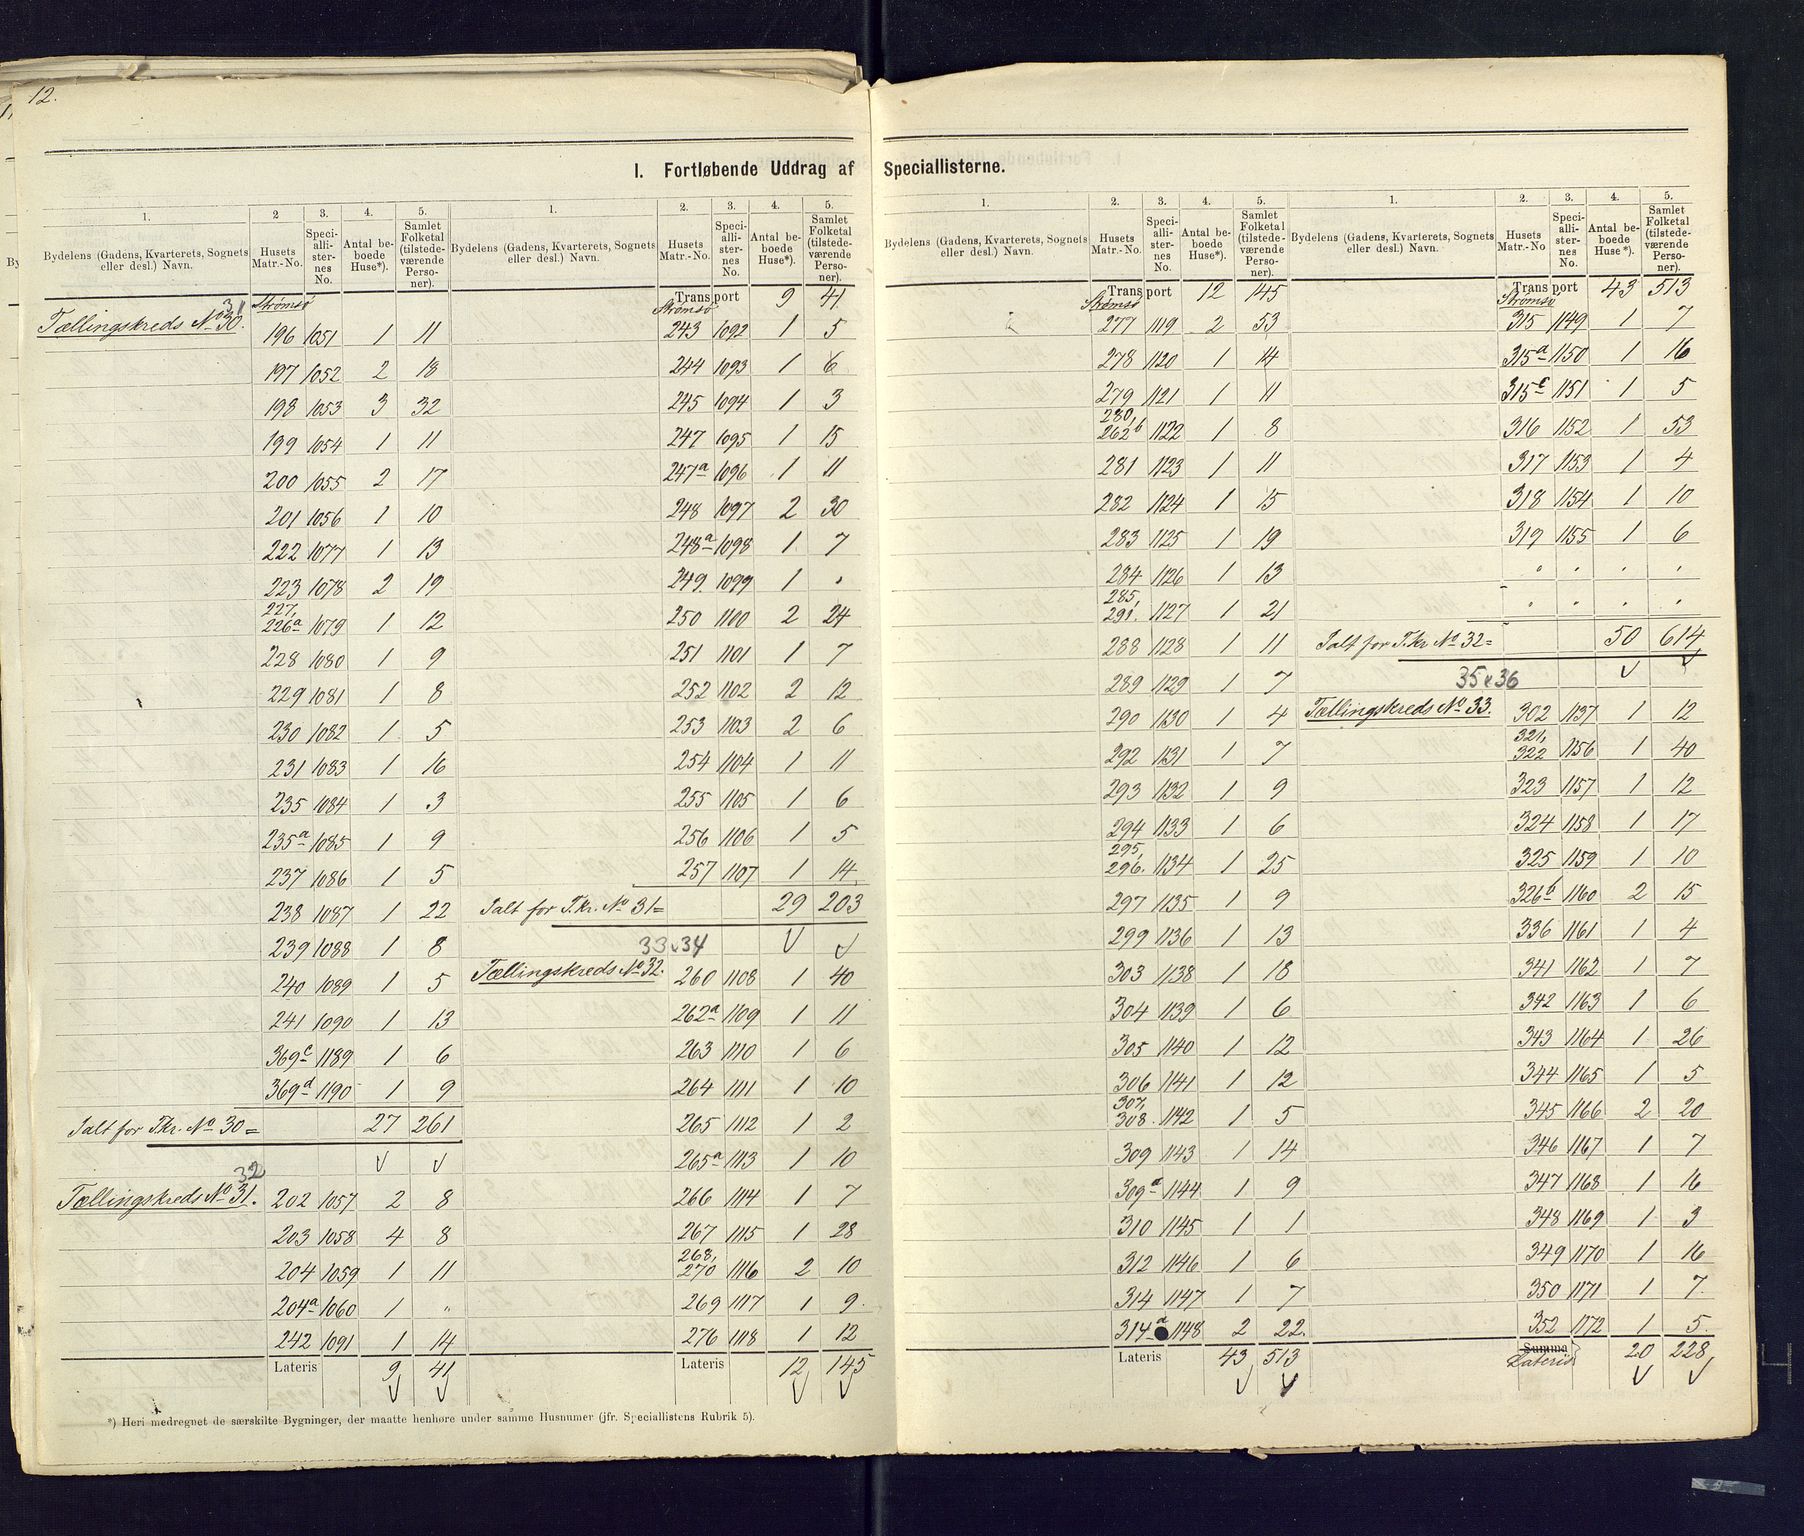 12.
I. Fortløbende Uddrag af Speciallisterne.
1. 2 3. 4. 5.
Bydelens (Gadens, Kvarterets, Sognets eller desl.) Navn. Husets Matr.-No. Speciallisternes No. Antal beboede Huse*). Samlet Folketal (tilstedeværende Personer).
Strømsø
31
Tællingskreds No 30. 196 1051 1 11
197 1052 2 18
198 1053 3 32
199 1054 1 11
200 1055 2 17
201 1056 1 10
222 1077 1 13
223 1078 2 19
227, 226a 1079 1 12
228 1080 1 9
229 1081 1 8
230 1082 1 5
231 1083 1 16
235 1084 1 3
235a 1085 1 9
237 1086 1 5
238 1087 1 22
239 1088 1 8
240 1089 1 5
241 1090 1 13
369c 1189 1 6
369d 1190 1 9
Ialt for T.kr. No 30 = 27 261
32
Tællingskreds No 31. 202 1057 2 8
203 1058 4 8
204 1059 1 11
204a 1060 1 "
242 1091 1 14
Lateris 9 41
1. 2. 3. 4. 5.
Bydelens (Gadens, Kvarterets, Sognets eller desl.) Navn. Husets Matr.-No. Speciallisternes No. Antal beboede Huse*). Samlet Folketal (tilstedeværende Personer).
Transport 9 41
Strømsø
243 1092 1 5
244 1093 1 6
245 1094 1 3
247 1095 1 15
247a 1096 1 11
248 1097 2 30
248a 1098 1 7
249. 1099 1 "
250 1100 2 24
251 1101 1 7
252 1102 2 12
253 1103 2 6
254 1104 1 11
255 1105 1 6
256 1106 1 5
257 1107 1 14
Ialt for T.kr. No 31 = 29 203
33 & 34
Tællingskreds No 32. 260 1108 1 40
262a 1109 1 11
263 1110 1 6
264 1111 1 10
265 1112 1 2
265a 1113 1 10
266 1114 1 7
267 1115 1 28
268, 270 1116 2 10
269 1117 1 9.
276 1118 1 12
Lateris 12 145
*) Heri medregnet de særskilte Bygninger, der maatte henhøre under samme Husnumer (jfr. Speciallistens Rubrik 5).
1. 2. 3. 4. 5.
Bydelens (Gadens, Kvarterets, Sognets eller desl.) Navn. Husets Matr.-No. Speciallisternes No. Antal beboede Huse*). Samlet Folketal (tilstedeværende Personer).
Transport 12 145
Strømsø
277 1119 2 53
278 1120 1 14
279 1121 1 11
280, 262b 1122 1 8
281 1123 1 11
282 1124 1 15
283 1125 1 19
284 1126 1 13
285, 291. 1127 1 21
288 1128 1 11
289 1129 1 7
290 1130 1 4
292 1131 1 7
293 1132 1 9
294 1133 1 6
295, 296. 1134 1 25
297 1135 1 9
299 1136 1 13
303 1138 1 18
304 1139 1 6
305 1140 1 12
306 1141 1 12
307, 308. 1142 1 5
309 1143 1 14
309a 1144 1 9
310 1145 1 1
312 1146 1 6
314 1147 1 7
314a 1148 2 22.
Lateris 43 513
1. 2. 3. 4. 5.
Bydelens (Gadens, Kvarterets, Sognets eller desl.) Navn. Husets Matr.-No. Speciallisternes No. Antal beboede Huse*). Samlet Folketal (tilstedeværende Personer).
Transport 43 513
Strømsø
315 1149 1 7
315a 1150 1 16
315c 1151 1 5
316 1152 1 53
317 1153 1 4
318 1154 1 10
319 1155 1 6
" " " "
" " " "
Ialt for T.kr. No 32 = 50 614
35 & 36
Tællingskreds No 33 302 1137 1 12
321, 322 1156 1 40
323 1157 1 12
324 1158 1 17
325 1159 1 10
326b 1160 2 15
336 1161 1 4
341 1162 1 7
342 1163 1 6
343 1164 1 26
344 1165 1 5
345 1166 2 20
346 1167 1 7
347 1168 1 16
348 1169 1 3
349 1170 1 16
350 1171 1 7.
352 1172 1 5.
Summa
Lateris 20 228